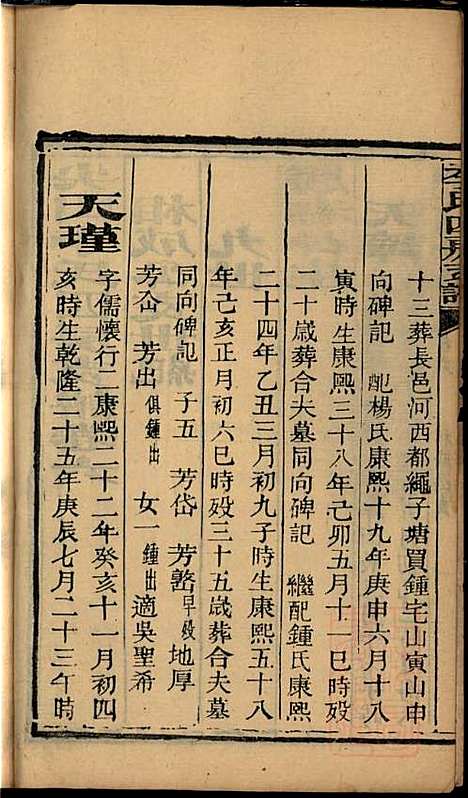 十三葬長邑河西都繩子塘買鍾宅山寅山申
向碑記 配楊氏康熙十九年庚申六月十八
寅時生康熙三十八年己卯五月十一巳時殁
二十歲葬合夫墓同向碑記 繼配鍾氏康熙
二十四年乙丑三月初九子時生康熙五十八
年己亥正月初六巳時殁三十五歲葬合夫墓
同向碑記 子五 芳岱 芳嵍早殁 地厚
芳岙 芳出俱鍾出 女一鍾出適吳聖希
天瑾
字儒懷行二康熙二十二年癸亥十一月初四
亥時生乾隆二十五年庚辰七月二十三午時